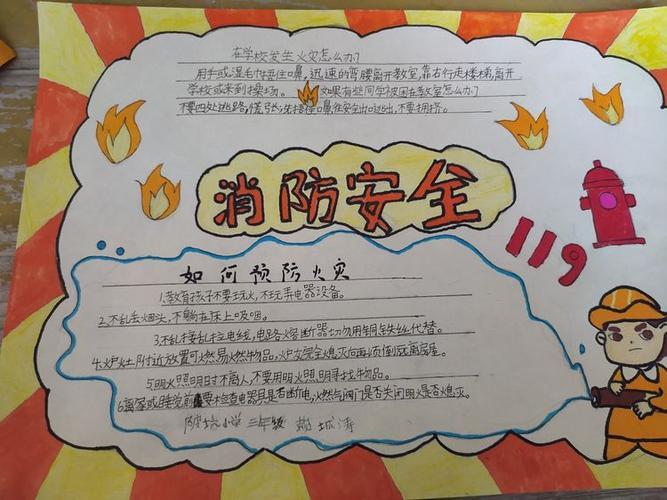 在学校发生火灾怎么办?
用手或湿毛巾捂住口鼻,迅速的弯腰离开教室,靠右行走楼梯,离开
学校或来到操场。如果有些同学被困在教室怎么办?
不要四处逃路,慌张,先捂住口鼻,往安全出口逃出,不要拥挤。
消防安全
119
如何预防火灾
1.教育孩子不要玩火,不玩弄电器设备。
2.不乱丢烟头,不躺在床上吸烟。
3.不乱接乱拉电线,电路熔断器切勿用铜铁丝代替。
4.炉灶附近放置可燃易燃物品,炉灰完全熄灭后再倾倒远离房屋。
5.明火照明时不离人,不要用明火照明寻找物品。
6.离家或睡觉前要检查电器具是否断电,燃气阀门是否关闭明火是否熄灭。
小学 三年级 城涛